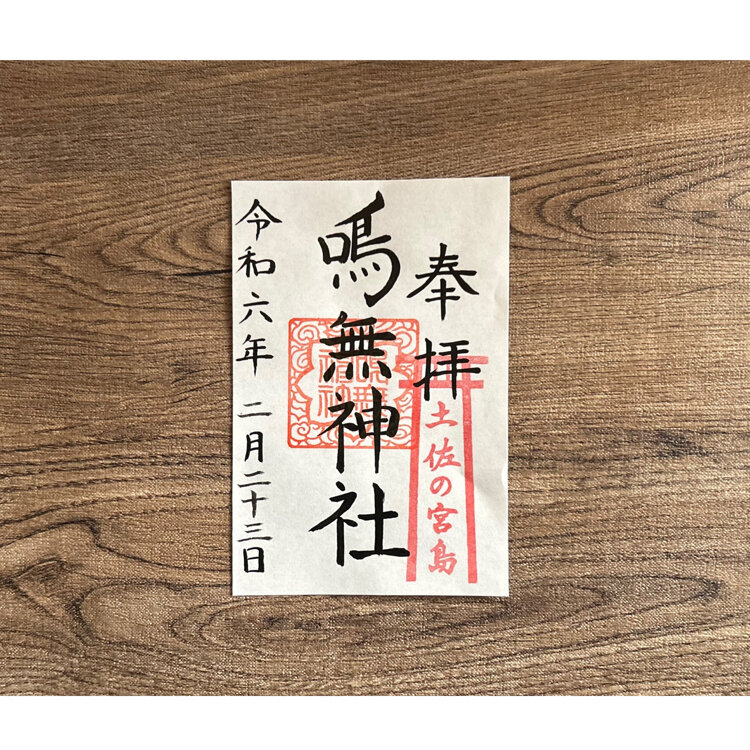 奉拝
土佐の宮島
鳴無神社
令和六年 二月二十三日